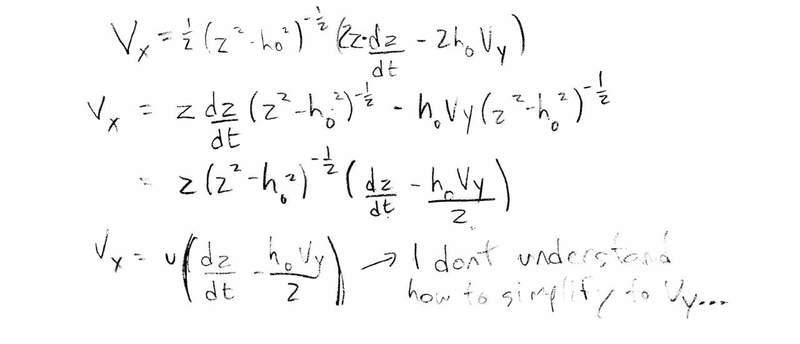 Vx = ½ (z² - h₀²)^(-½) (2z·dz/dt - 2h₀Vy)
Vx = z dz/dt (z² - h₀²)^(-½) - h₀Vy(z² - h₀²)^(-½)
= z(z² - h₀²)^(-½) (dz/dt - h₀Vy/z)
Vx = u(dz/dt - h₀Vy/z) → I dont understand
how to simplify to Vy...